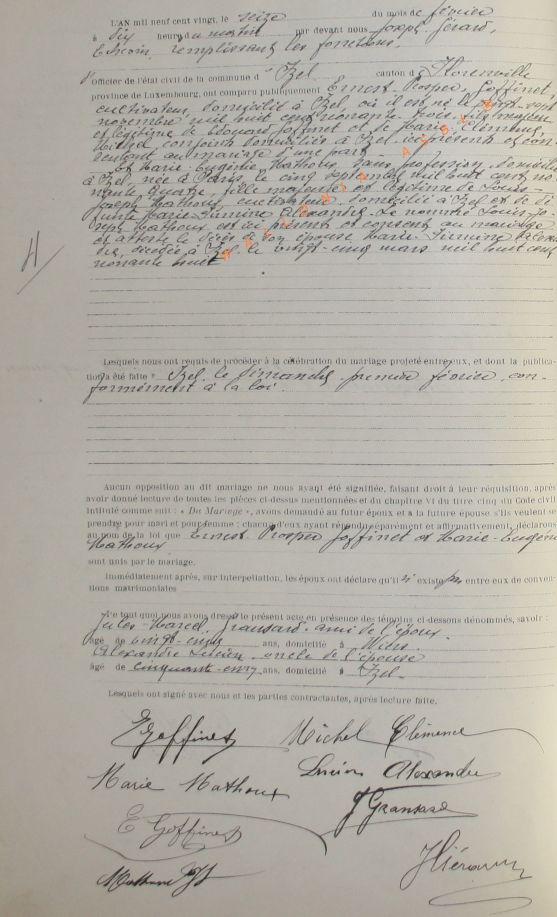 L'AN mil neuf cent vingt, le seize du mois de février
à dix heures du matin par devant nous Joseph Gérard,
Echevin, remplissant les fonctions,
d'officier de l'état civil de la commune d' Izel canton d Florenville
province de Luxembourg, ont comparu publiquement Ernest Prosper Goffinet,
cultivateur, domicilié à Izel, où il est né le
novembre mil huit cent nonante trois, fils majeur
et légitime de Edouard Goffinet et de Marie Clémence
Michel, conjoints domiciliés à Izel, ici présents et con-
sentant au mariage d'une part
et Marie-Eugénie Mathoux, sans profession, domiciliée
à Izel, née à le cinq septembre mil huit cent no-
nante quatre, fille majeure et légitime de Louis-
Joseph Mathoux, cultivateur, domicilié à Izel et de dé-
funte Marie-Firmine Alexandre. Le nommé Louis-Jo-
seph Mathoux est ici présent et consent au mariage
et atteste le décès de son épouse Marie-Firmine Alexan-
dre, décédée à Izel le vingt-cinq mars mil huit cent
nonante huit
H
Lesquels nous ont requis de procéder à la célébration du mariage projeté entre eux, et dont la publica-
tion a été faite à Izel le dimanche premier février, con-
formément à la loi.
Aucun opposition au dit mariage ne nous ayant été signifiée, faisant droit à leur réquisition, après
avoir donné lecture de toutes les pièces ci-dessus mentionnées et du chapitre VI du titre cinq du Code civil
intitulé comme suit : « Du Mariage », avons demandé au futur époux et à la future épouse s'ils veulent se
prendre pour mari et pour femme : chacun d'eux ayant répondu séparément et affirmativement, déclarons
au nom de la loi que Ernest Prosper Goffinet et Marie-Eugénie
Mathoux
sont unis par le mariage.
Immédiatement après, sur interpellation, les époux ont déclaré qu'il n'existe pas entre eux de conven-
tions matrimoniales
De tout quoi nous avons dressé le présent acte en présence des témoins ci-dessous dénommés, savoir :
Jules-Marcel Gransard ami de l'époux
âgé de vingt-cinq ans, domicilié à
Alexandre Lucien, oncle de l'épouse
âgé de cinquante-cinq ans, domicilié à Izel-
Lesquels ont signé avec nous et les parties contractantes, après lecture faite.
E Goffinet Michel Clémence
Marie Mathoux Lucien Alexandre
J Gransard
E Goffinet